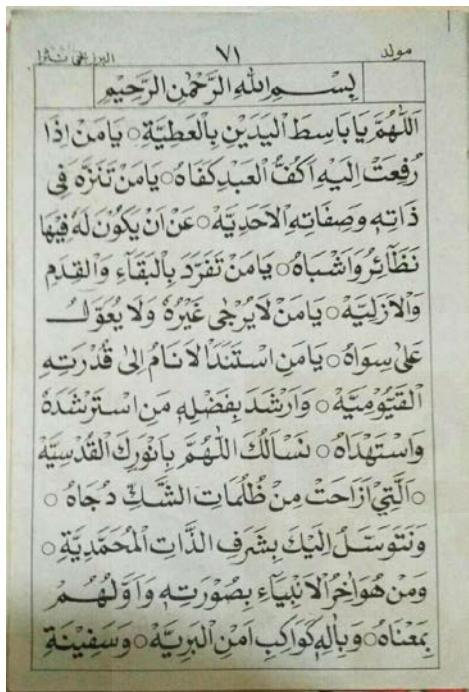 مولد ٧١ البرزنجي نثرا
بِسْمِ اللّٰهِ الرَّحْمٰنِ الرَّحِيْمِ
اَللّٰهُمَّ يَا بَاسِطَ الْيَدَيْنِ بِالْعَطِيَّةِ ○ يَا مَنْ اِذَا
رُفِعَتْ اِلَيْهِ اَكُفُّ الْعَبْدِ كَفَاهُ ○ يَا مَنْ تَنَزَّهَ فِى
ذَاتِهٖ وَصِفَاتِهِ الْاَحَدِيَّهْ ○ عَنْ اَنْ يَكُوْنَ لَهٗ فِيْهَا
نَظَآئِرُ وَاَشْبَاهُ ○ يَا مَنْ تَفَرَّدَ بِالْبَقَآءِ وَالْقِدَمِ
وَالْاَزَلِيَّهْ ○ يَا مَنْ لَا يُرْجٰى غَيْرُهٗ وَلَا يُعَوَّلُ
عَلٰى سِوَاهُ ○ يَا مَنِ اسْتَنَدَ الْاَنَامُ اِلٰى قُدْرَتِهِ
الْقَيُّوْمِيَّهْ ○ وَاَرْشَدَ بِفَضْلِهٖ مَنِ اسْتَرْشَدَهٗ
وَاسْتَهْدَاهُ ○ نَسْاَلُكَ اللّٰهُمَّ بِاَنْوَرِكَ الْقُدْسِيَّهْ
○ اَلَّتِيْ اَزَاحَتْ مِنْ ظُلُمَاتِ الشَّكِّ دُجَاهُ ○
وَنَتَوَسَّلُ اِلَيْكَ بِشَرَفِ الذَّاتِ الْمُحَمَّدِيَّةِ ○
وَمَنْ هُوَ اٰخِرُ الْاَنْبِيَآءِ بِصُوْرَتِهٖ وَاَوَّلُهُمْ
بِمَعْنَاهُ ○ وَبِاٰلِهٖ كَوَاكِبِ اَمْنِ الْبَرِيَّهْ ○ وَسَفِيْنَةِ